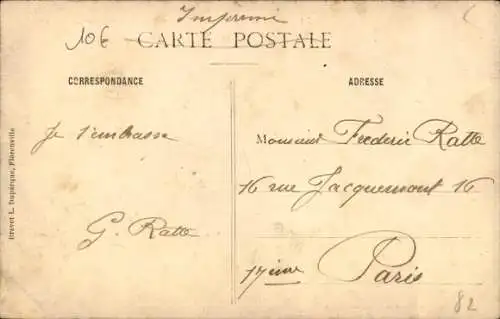 Imprimé
10€
CARTE POSTALE
CORRESPONDANCE
ADRESSE
Je t'embrasse
G. Ratte
Monsieur Frederic Ratte
16 rue Jacquemont 16
17ème Paris
82
Brevet L. Duparque, Florenville